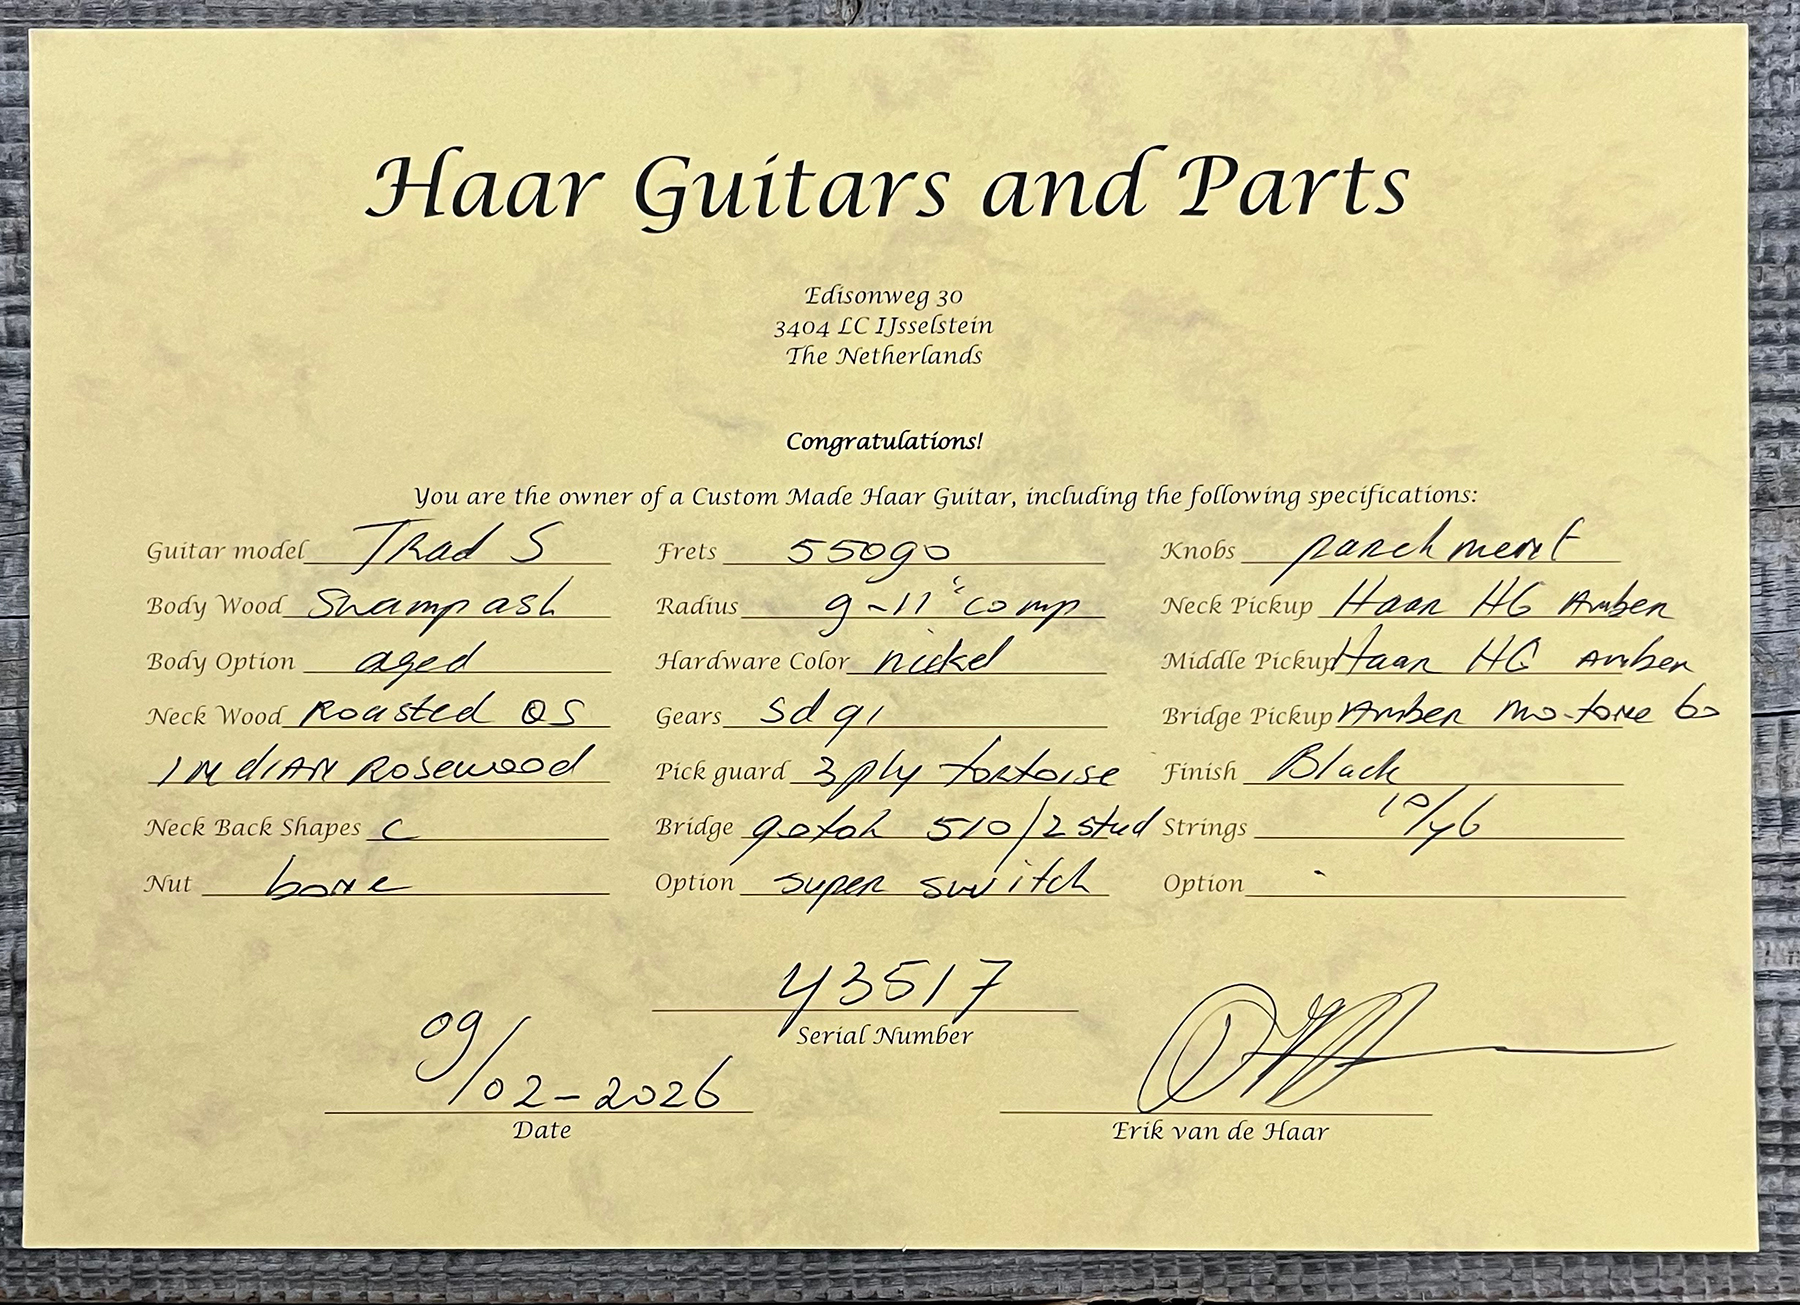 Haar Guitars and Parts
Edisonweg 30
3404 LC IJsselstein
The Netherlands
Congratulations!
You are the owner of a Custom Made Haar Guitar, including the following specifications:
Guitar model Trad S Frets 55090 Knobs parchment
Body Wood Swamp ash Radius 9-11" comp Neck Pickup Haar HG Amber
Body Option aged Hardware Color nickel Middle Pickup Haar HG Amber
Neck Wood Roasted QS Gears sd 91 Bridge Pickup Amber no-tone 60
INdIAN Rosewood Pick guard 3 ply tortoise Finish Black
Neck Back Shapes C Bridge gotoh 510/2 stud Strings 10/46
Nut bone Option super switch Option -
43517
Serial Number
09/02-2026
Date
Erik van de Haar